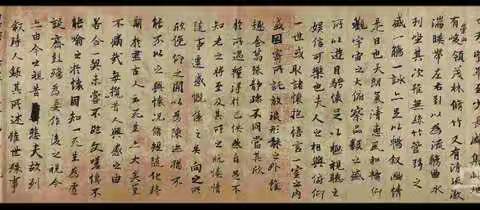 有峻領茂林脩竹又有清流激
湍暎帶左右引以為流觴曲水
列坐其次雖無絲竹管弦之
盛一觴一詠亦足以暢叙幽情
是日也天朗氣清惠風和暢仰
觀宇宙之大俯察品類之盛
所以遊目騁懷足以極視聽之
娛信可樂也夫人之相與俯仰
一世或取諸懷抱悟言一室之內
或因寄所託放浪形骸之外雖
趣舍萬殊靜躁不同當其欣
於所遇蹔得於己快然自足不
知老之將至及其所之既惓情
隨事遷感慨係之矣向之所
欣俛仰之閒以為陳迹猶不
能不以之興懷況脩短隨化終
期於盡古人云死生亦大矣豈
不痛哉每攬昔人興感之由
若合一契未嘗不臨文嗟悼不
能喻之於懷固知一死生為虛
誕齊彭殤為妄作後之視今
亦由今之視昔悲夫故列
敘時人錄其所述雖世殊事